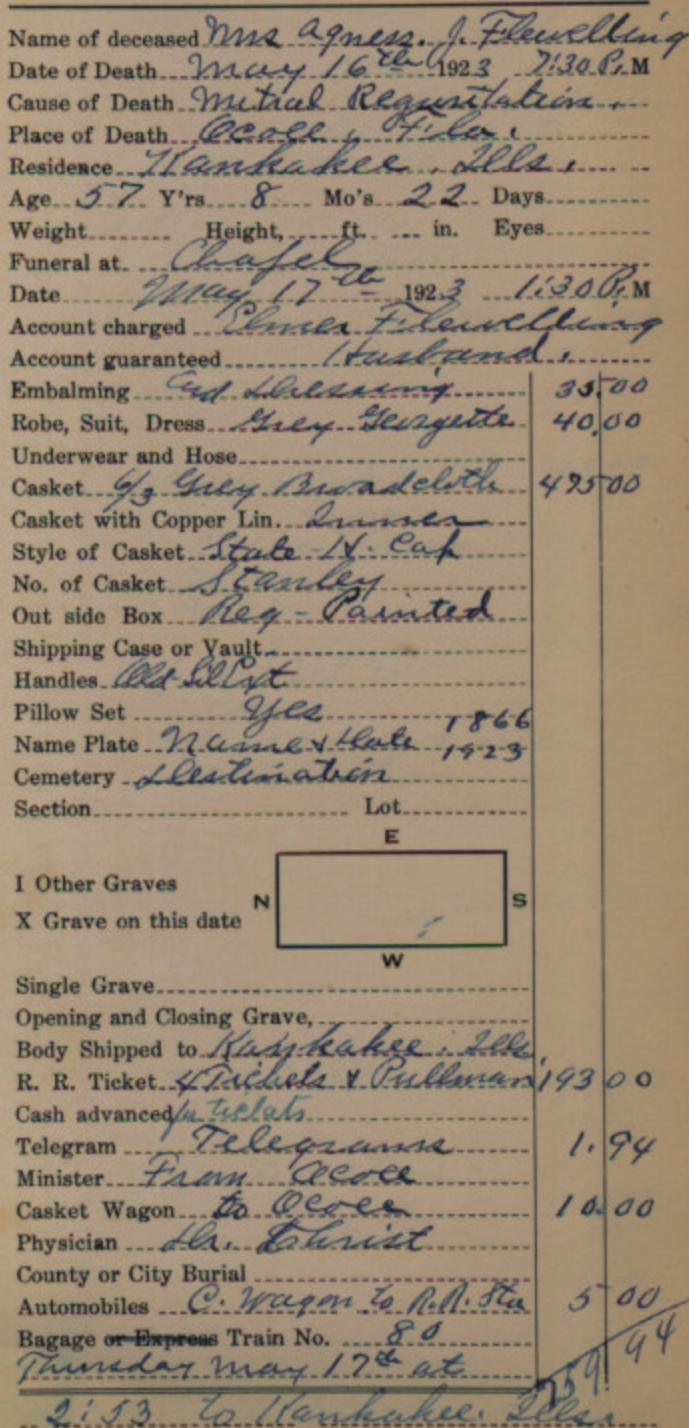 Name of deceased Mrs Agness. J. Flewelling
Date of Death May 16th 1923 7:30 P. M
Cause of Death Mitral Reguritation.
Place of Death Ocoee, Fla.
Residence Kankakee, Ills.
Age 57 Y'rs 8 Mo's 22 Days
Weight Height, ft. in. Eyes
Funeral at Chapel
Date May 17th 1923 1:30 P. M
Account charged Elmer Flewelling
Account guaranteed Husband.
Embalming and Dressing 35.00
Robe, Suit, Dress Grey Georgette 40.00
Underwear and Hose
Casket 6/3 Grey Broadcloth 475 00
Casket with Copper Lin. Inner
Style of Casket State H. Cap
No. of Casket Stanley
Out side Box Reg - Painted
Shipping Case or Vault
Handles Old Sil Ext
Pillow Set Yes
Name Plate Name & Date 1866 1923
Cemetery Destination
Section Lot
E
I Other Graves
N S
X Grave on this date
W
Single Grave
Opening and Closing Grave,
Body Shipped to Kankakee. Ills.
R. R. Ticket 4 Tickets & Pullman 193 00
Cash advanced for tickets
Telegram Telegrams 1.94
Minister From Ocoee
Casket Wagon to Ocoee 10.00
Physician Dr. Christ
County or City Burial
Automobiles C. Wagon to R.R. Sta 5 00
Bagage or Express Train No. 80
Thursday May 17th at 759 94
2:53 to Kankakee. Ills.